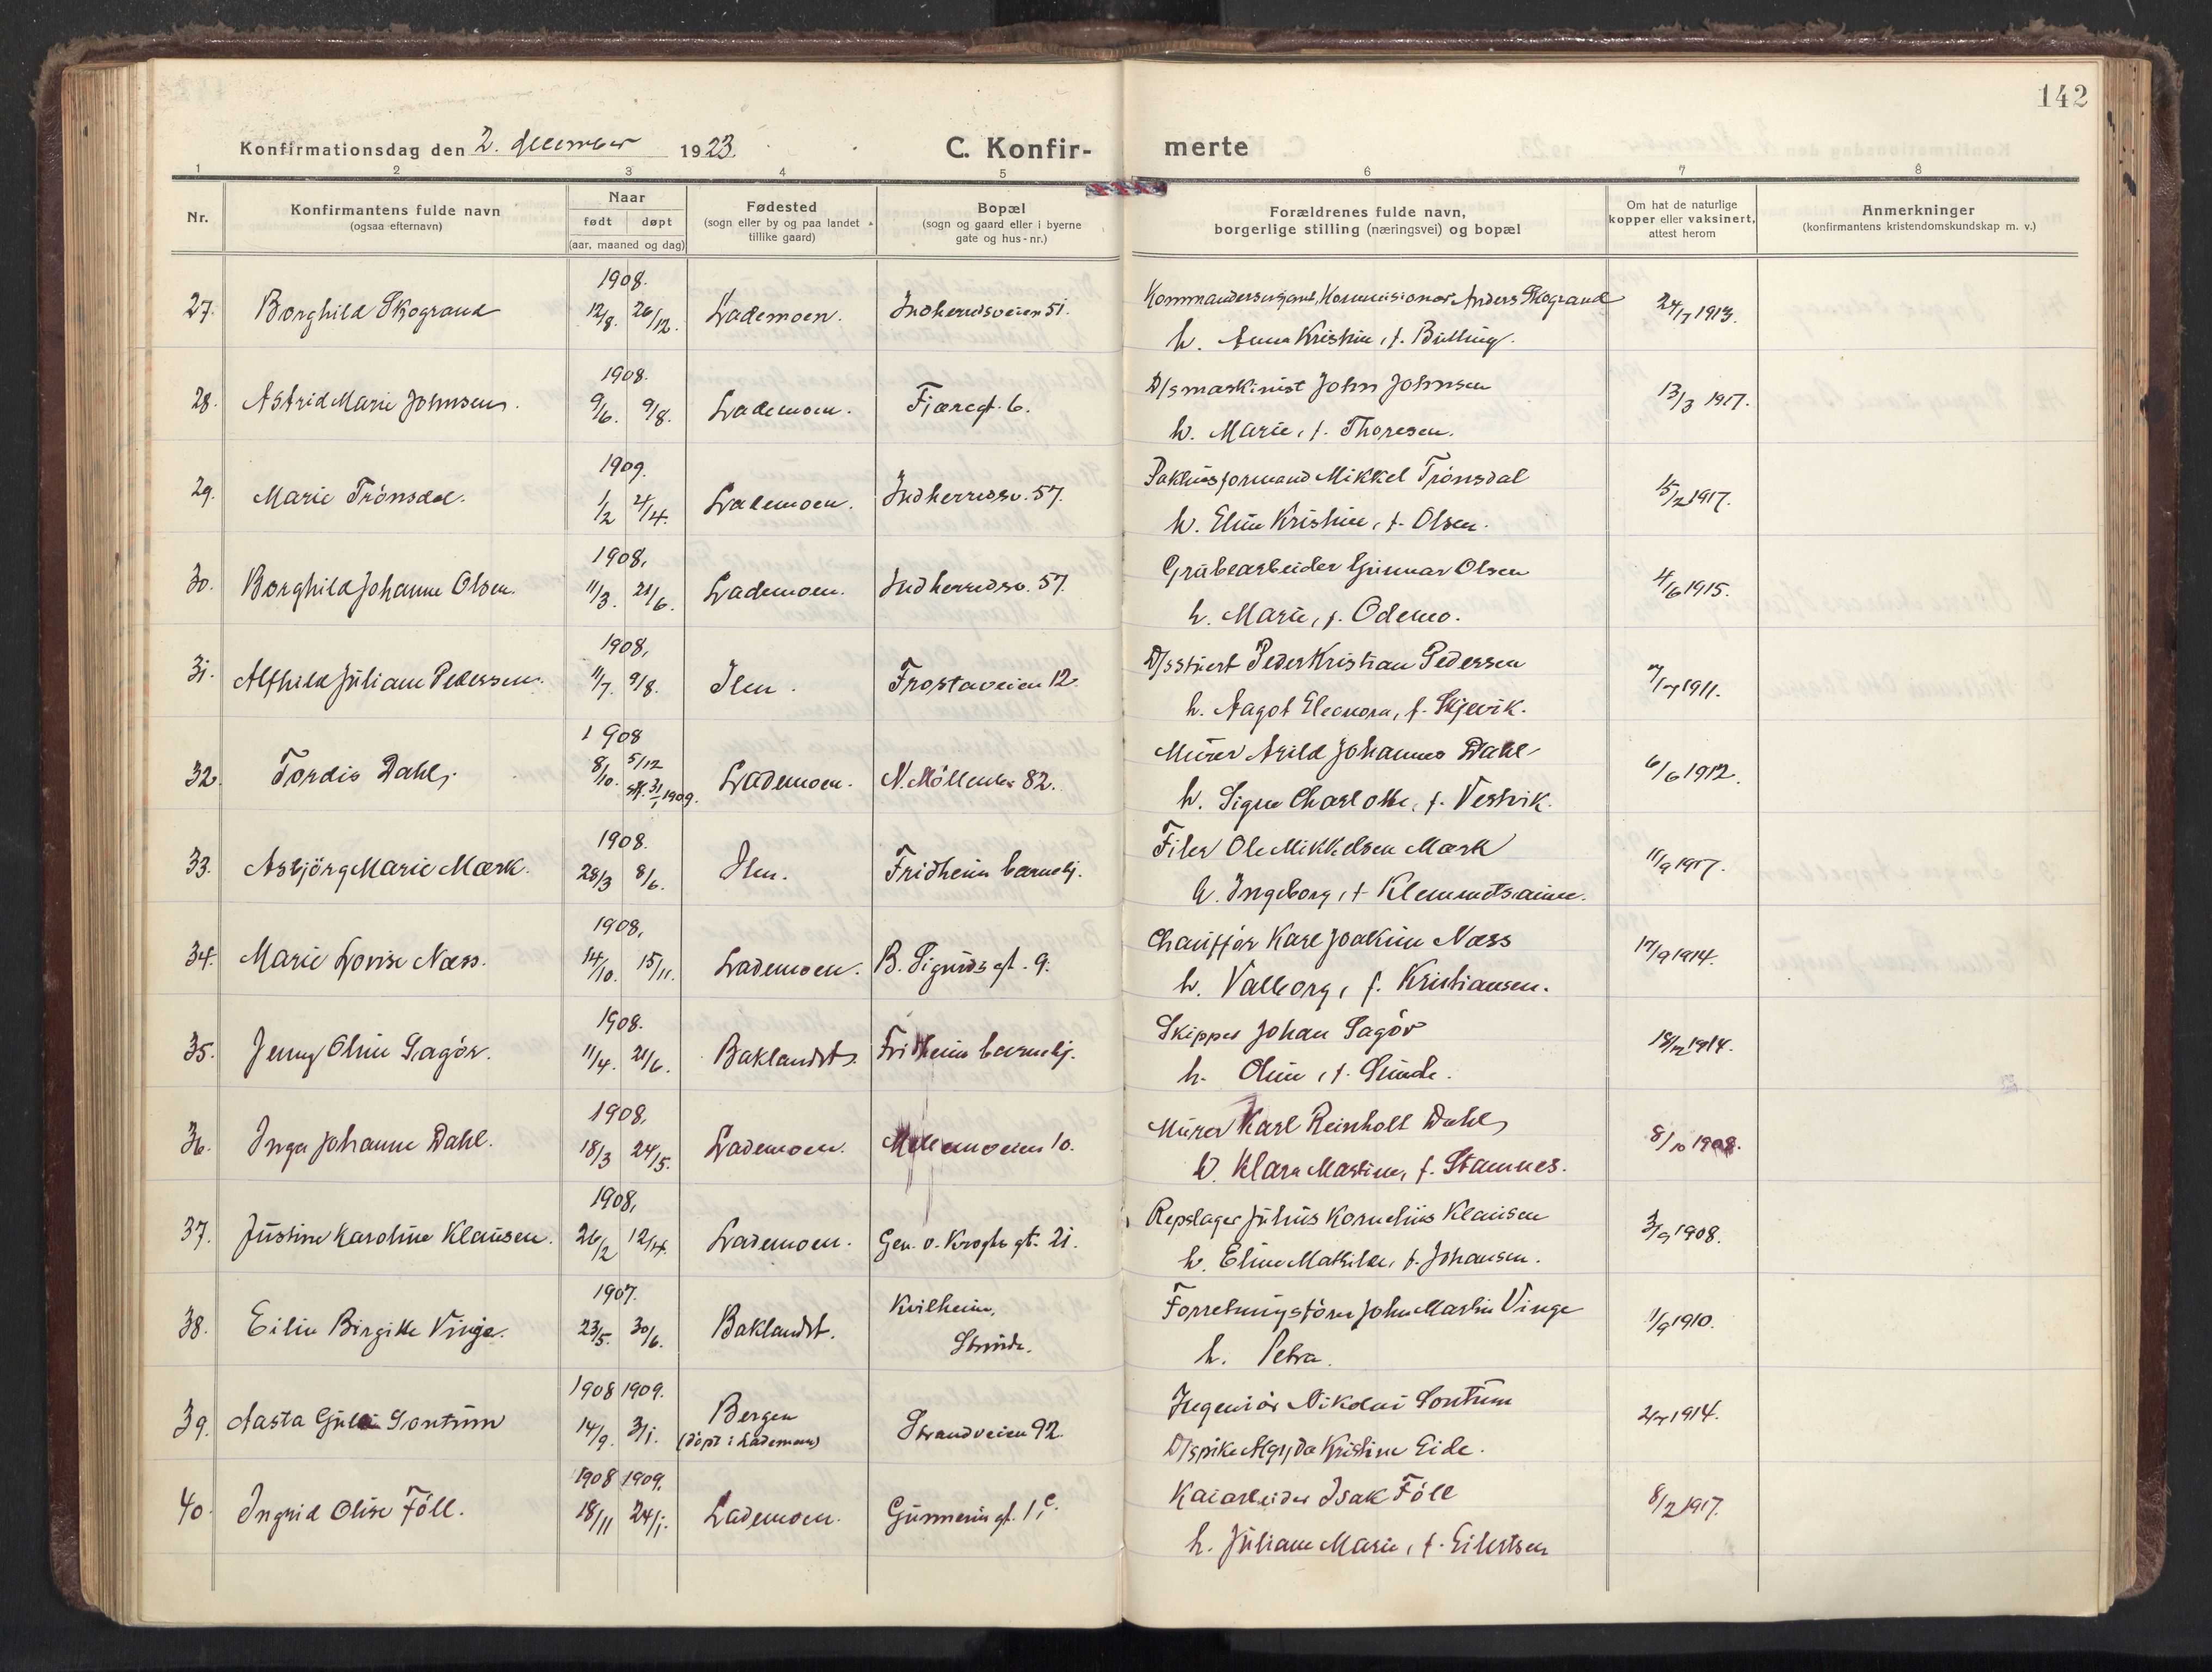 142
Konfirmationsdag den 2. december 1923.
C. Konfirmerte
1 2 3 4 5 6 7 8
Nr.
Konfirmantens fulde navn
(ogsaa efternavn)
Naar
født døpt
(aar, maaned og dag)
Fødested
(sogn eller by og paa landet
tillike gaard)
Bopæl
(sogn og gaard eller i byerne
gate og hus-nr.)
Forældrenes fulde navn,
borgerlige stilling (næringsvei) og bopæl
Om hat de naturlige
kopper eller vaksinert,
attest herom
Anmerkninger
(konfirmantens kristendomskundskap m. v.)
1908.
27. Borghild Skogrand 12/8. 26/12. Lademoen. Indherredsveien 51. Kommandersergeant, Kommisionær Anders Skogrand 24/7 1913.
h. Anna Kristine, f. Bülling.
1908.
28. Astrid Marie Johnsen. 9/6. 9/8. Lademoen. Fjæregt. 6. D/smaskinist John Johnsen 13/3 1917.
h. Marie, f. Thoresen.
1909.
29. Marie Trönsdal. 1/2 4/4. Lademoen. Indherredsv. 57. Pakhusformand Mikkel Trönsdal 15/2 1917.
h. Eline Kristine, f. Olsen.
1908,
30. Borghild Johanne Olsen. 11/3. 21/6. Lademoen. Indherredsv. 57. Grubearbeider Gunnar Olsen 4/6 1915.
h. Marie, f. Odemo.
1908,
31. Alfhild Juliane Pedersen. 11/7. 9/8. Ilen. Frostaveien 12. D/sstuert Peder Kristian Pedersen 1911.
h. Aagot Eleonora, f. Skjevik.
1908
32. Tordis Dahl. 8/10. 5/12 st. 31/1 1909. Lademoen. N. Möllenber 82. Murer Arild Johannes Dahl 6/6 1912.
h. Signe Charlotte, f. Vestvik.
1908.
33. Asbjörg Marie Mærk. 28/3 8/6. Ilen. Fridheim barnehj. Filer Ole Mikkelsen Mærk 11/9 1917.
h. Ingeborg, f.
1908,
34. Marie Lovise Næss. 14/10. 15/11. Lademoen. B. Sigurds gt. 9. Chauffør Karl Joakim Næss 17/9 1914.
h. Valborg, f. Kristiansen.
1908.
35. Jenny Oline Sagör. 11/4. 21/6. Baklandet. Fridheim barnehj. Skipper Johan Sagör 1914.
h. Oline, f. Sunde.
1908,
36. Inga Johanne Dahl. 18/3 24/5. Lademoen. 10. Murer Karl Reinholt Dahl 8/10 1908.
h. Klara Martine, f. Stamnes.
1908,
37. Justine Karoline Klausen. 26/2 12/4. Lademoen. Gen. v. Kroghs gt. 21. Repslager Julius Kornelius Klausen 3/9 1908.
h. Eline Mathilde, f. Johansen.
1907.
38. Eilin Birgitte Vinge. 23/5. 30/6. Baklandet. Kvilheim, Strinda. Forretningsförer John Martin Vinge 1/9 1910.
h. Petra.
1908 1909.
39. Aasta Gulli Sontum 14/9. 3/1. Bergen (döpt i Lademoen) Strandveien 92. Ingeniör Nikolai Sontum 1914.
D/spike Kristine Eide.
1908 1909,
40. Ingrid Olise Föll. 18/11 24/1. Lademoen. Gunnerusgt. 1 c. Kaiarbeider Isak Föll 8/2 1917.
h. Juliane Marie, f. Eilertsen